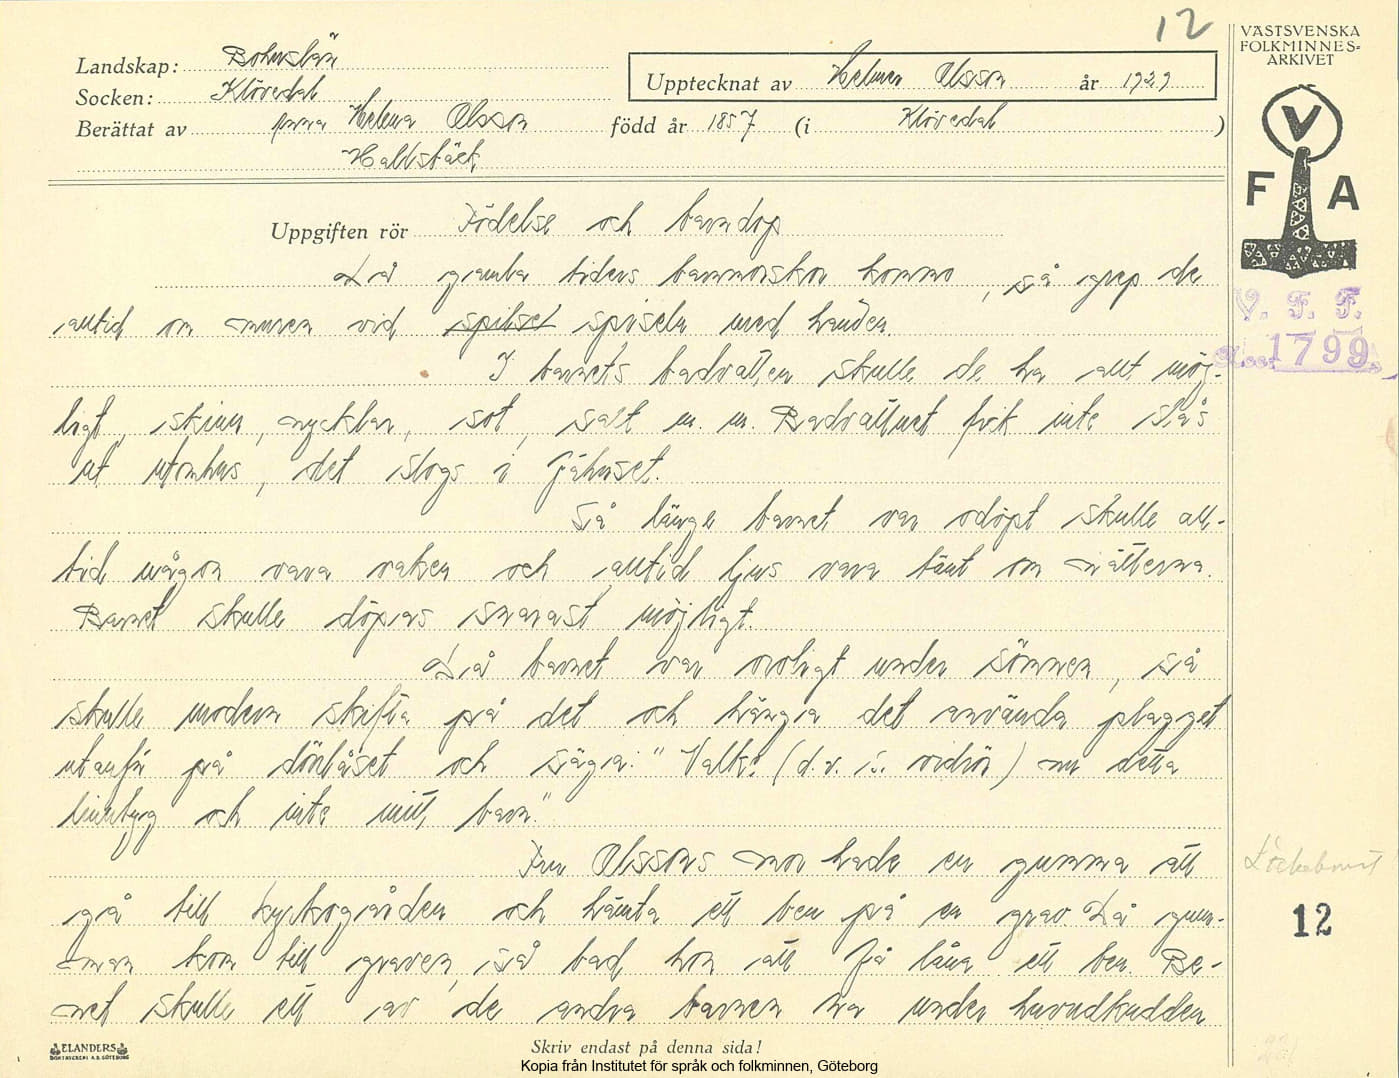 12
VÄSTSVENSKA
FOLKMINNES-
ARKIVET
Landskap: Bohuslän
Socken: Klövedal
Upptecknat av Helmer Olsson år 1929
Berättat av fru Helena Olsson född år 1857 (i Klövedal )
Hallsbäck
V
F A
Uppgiften rör Födelse och barndop
Då gamla tiders barnmorskor kommo, så grep de
alltid om muren vid spilset spiseln med handen.
V. F. F.
1799
I barnets badvatten skulle de ha allt möj-
ligt, skinn, nycklar, sot, salt m. m. Badvattnet fick inte slås
ut utomhus, det slogs i fähuset.
Så länge barnet var odöpt skulle all-
tid någon vara vaken och alltid ljus vara tänt om nätterna.
Barnet skulle döpas snarast möjligt.
Då barnet var oroligt under sömnen, så
skulle modern skifta på det och hänga det använda plagget
utanför på dörrlåset och säga: "Valk! (d. v. s. vidrör) nu detta
lintyg och inte mitt barn."
Fru Olssons mor bade en gumma att
gå till kyrkogården och hämta ett ben på en grav. Då gum-
man kom till graven, så bad hon att få låna ett ben. Be-
net skulle ett av de andra barnen ha under huvudkudden
12
ELANDERS
BOKTRYCKERI A.B. GÖTEBORG
Skriv endast på denna sida!
Kopia från Institutet för språk och folkminnen, Göteborg